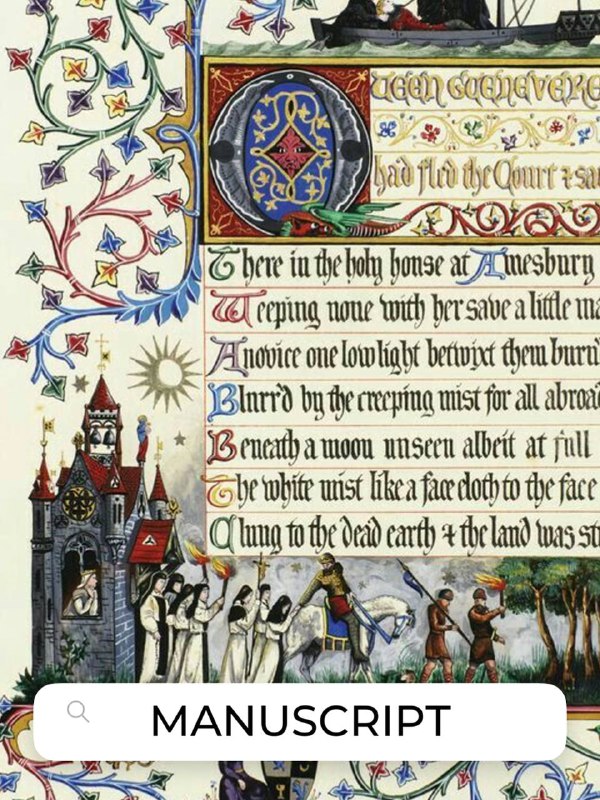 QUEEN GUENEVERE
had fled the Court & sa
There in the holy house at Amesbury
Weeping none with her save a little ma
A novice one low light betwixt them burn'
Blurr'd by the creeping mist for all abroa
Beneath a moon unseen albeit at full
The white mist like a face cloth to the face
Clung to the dead earth & the land was st
MANUSCRIPT